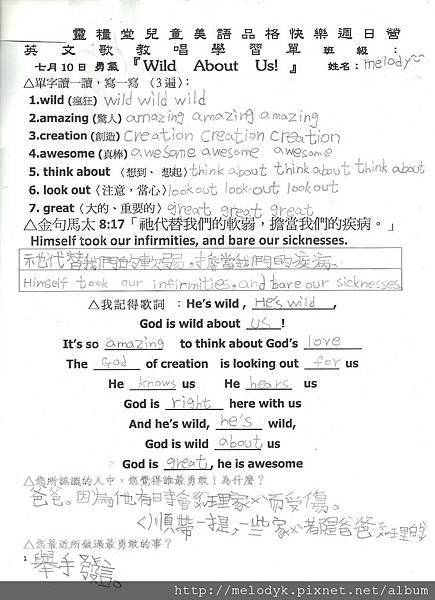 靈糧堂兒童美語品格快樂週日營
英文歌教唱學習單 班級：
七月10日勇氣『Wild About Us! 』 姓名：melody~
△單字讀一讀，寫一寫〈3遍〉：
1.wild (瘋狂) wild wild wild
2.amazing (驚人) amazing amazing amazing
3.creation (創造) creation creation creation
4.awesome (真棒) awesome awesome awesome
5. think about 〈想到、想起〉think about think about think about
6. look out 〈注意，當心〉look out look out look out
7. great〈大的、重要的〉great great great
△金句馬太 8:17「祂代替我們的軟弱，擔當我們的疾病。」
Himself took our infirmities, and bare our sicknesses.
祂代替我們的軟弱，擔當我們的疾病。
Himself took our infirmities, and bare our sicknesses.
△我記得歌詞 ：He's wild , He's wild ,
God is wild about us !
It's so amazing to think about God's love
The God of creation is looking out for us
He knows us He hears us
God is right here with us
And he's wild, he's wild,
God is wild about us
God is great, he is awesome
△您所認識的人中，您覺得誰最勇敢！為什麼？
爸爸。因為他有時會 修理家 而受傷。
順帶一提，一些家 都是爸爸 修理的
△您最近所做過最勇敢的事？
1 舉手發言。
http://melodyk.pixnet.net/album